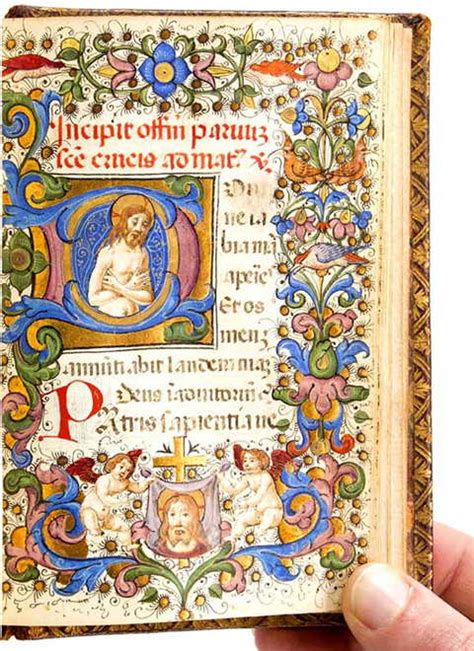 Incipit offiū paruuȝ
scē crucis ad matꝰ
DOmi
ne la
bia mā
apeīe
Et os
meuȝ
annūtiabit laudem tuā
Deus ī aditoriū
Patris sapientia ue